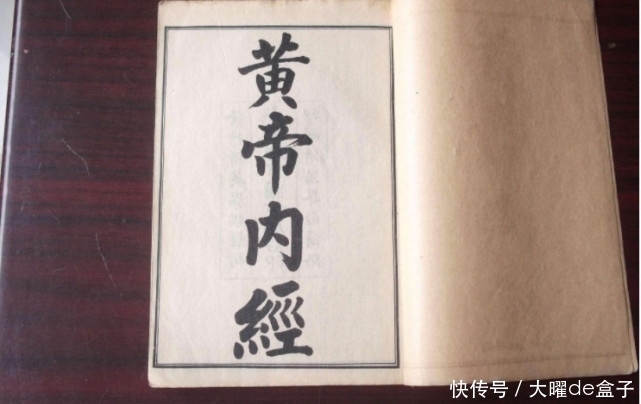 黄帝内經
快传号 / 大曜de盒子